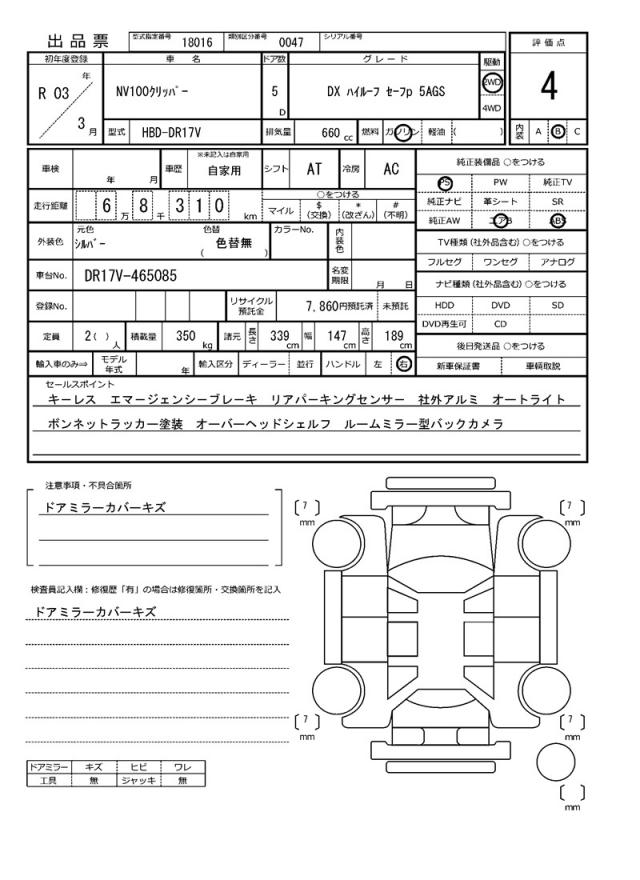 出品票 型式指定番号 18016 類別区分番号 0047 シリアル番号
評価点
4
初年度登録 車名 ドア数 グレード 駆動
R 03 年 3 月
NV100ｸﾘｯﾊﾟｰ 5 D DX ﾊｲﾙｰﾌ ｾｰﾌp 5AGS 2WD 4WD
型式 HBD-DR17V 排気量 660 cc 燃料 ガソリン 軽油 ( )
内装 A B C
車検 年 月 車歴 ※未記入は自家用 自家用 シフト AT 冷房 AC
純正装備品 ○をつける
PS PW 純正TV
純正ナビ 革シート SR
純正AW エアB ABS
走行距離 6 万 8 千 3 1 0 km ○をつける マイル $ (交換) * (改ざん) # (不明)
外装色 元色 ｼﾙﾊﾞｰ 色替 ( 色替無 ) カラーNo. 内装色
TV種類 (社外品含む) ○をつける
フルセグ ワンセグ アナログ
車台No. DR17V-465085 名変期限 月 日
ナビ種類 (社外品含む) ○をつける
登録No. リサイクル預託金 7,860円 預託済 未預託
HDD DVD SD
DVD再生可 CD
定員 2( ) 人 積載量 350 kg 諸元 長さ 339 cm 幅 147 cm 高さ 189 cm
後日発送品 ○をつける
輸入車のみ⇒ モデル年式 年 輸入区分 ディーラー 並行 ハンドル 左 右
新車保証書 車輌取説
セールスポイント
キーレス エマージェンシーブレーキ リアパーキングセンサー 社外アルミ オートライト
ボンネットラッカー塗装 オーバーヘッドシェルフ ルームミラー型バックカメラ
注意事項・不具合箇所
ドアミラーカバーキズ
検査員記入欄：修復歴「有」の場合は修復箇所・交換箇所を記入
ドアミラーカバーキズ
[ 7 ] mm
[ 7 ] mm
[ 7 ] mm
[ 7 ] mm
[ ] mm
ドアミラー キズ ヒビ ワレ
工具 無 ジャッキ 無